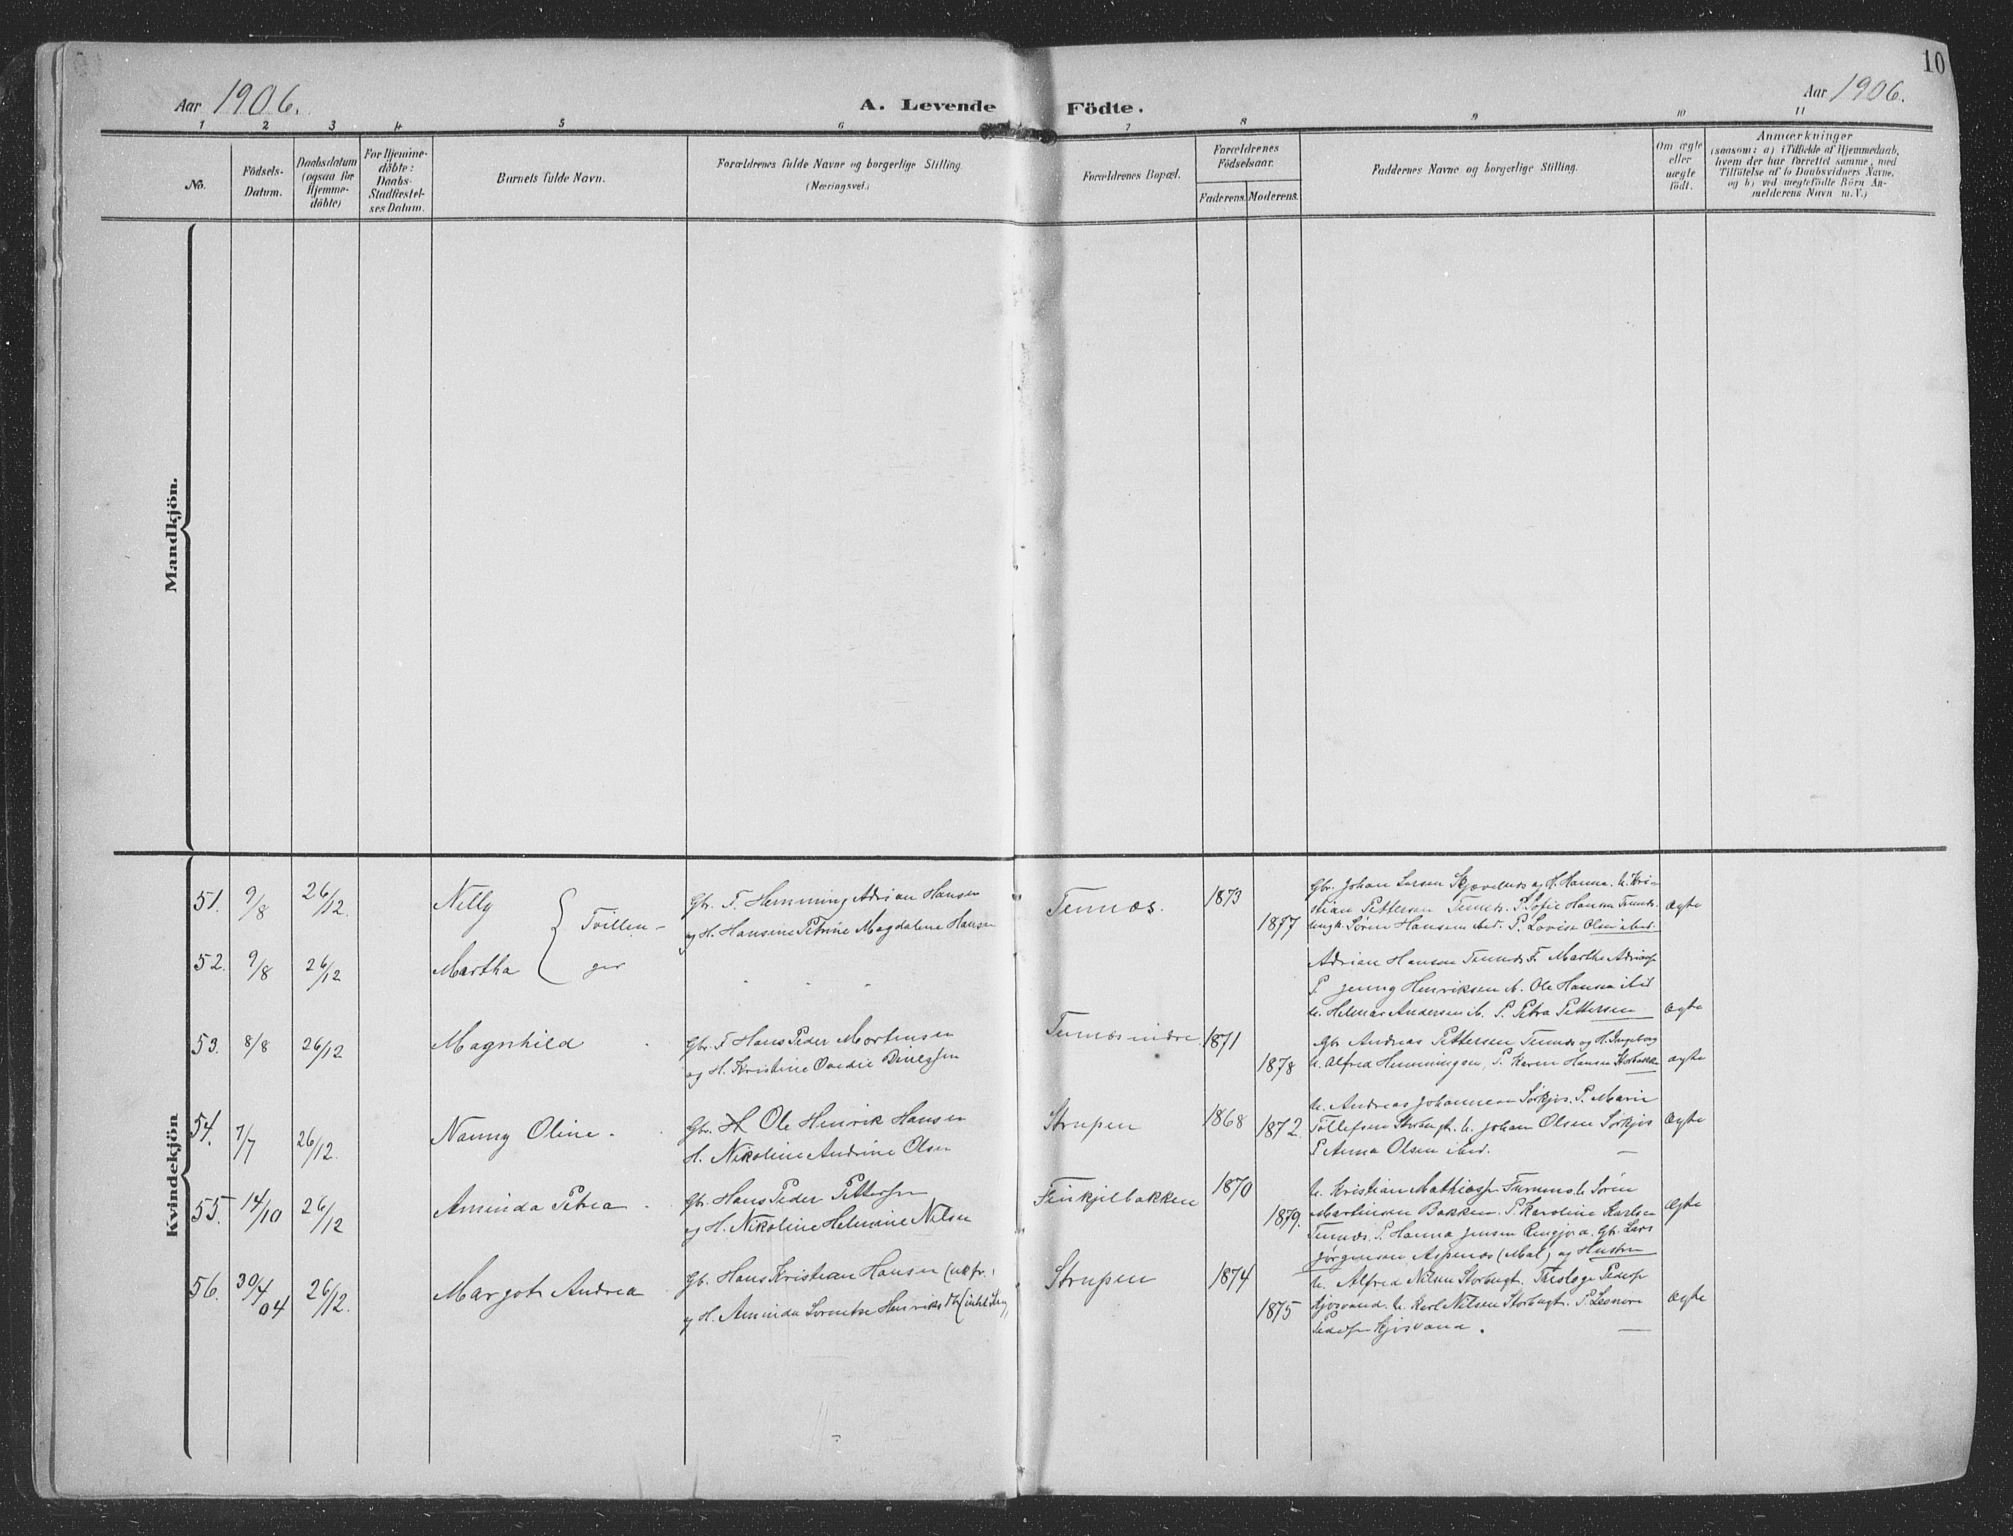 10
Aar 1906.
A. Levende Födte.
Aar 1906.
1 2 3 4 5 6 7 8 9 10 11
No.
Födsels-
Datum.
Daabsdatum
(ogsaa for
Hjemme-
döbte)
For Hjemme-
döbte:
Daabs-
Stadfæstel-
ses Datum.
Barnets fulde Navn.
Forældrenes fulde Navne og borgerlige Stilling.
(Næringsvei.)
Forældrenes Bopæl.
Forældrenes
Födselsaar.
Faderens. Moderens.
Faddernes Navne og borgerlige Stilling.
Om ægte
eller
uægte
födt.
Anmærkninger
(saasom: a) i Tilfælde af Hjemmedaab,
hvem der har forrettet samme, med
Tilföielse af to Daabsvidners Navne,
og b) ved uægtefödte Börn An-
melderens Navn m.V.)
Mandkjön.
Kvindekjön
51. 9/8 26/12. Nelly { Tvillen-
Gbr. F. Hemming Adrian Hansen
og H. Hansine Petrine Magdalene Hansen
Tennæs. 1873 1877
Gbr. Johan Larsen og H. Hanna. U. Kri-
stian Pettersen Tennæs. P. Sofie Hansen
Søren Hansen ibd. P. Lovise Olsen ibd.
Ægte
52. 9/8 26/12 Martha ger
" " "
Adrian Hansen Tennæs F. Marthe
P. Jenny Henriksen N. Ole Hansen ibd
U. Helmer Andersen N. P. Petra Pettersen
Ægte
53. 8/8 26/12 Magnhild
Gbr. F Hans Peder Mortensen
og H. Kristine Ovedie
Tennæs indre 1871 1878
Gbr Andreas Pettersen Tennæs og H. Ingeborg
U. Alfred Hemmingsen, P. Karen Hansen
Ægte
54. 7/7 26/12. Nanny Oline.
Gbr. H Ole Henrik Hansen
H. Nikoline Andrine Olsen
Strupen 1868 1872.
U. Andreas Johannesen Sørkjos. P. Marie
Tollefsen U. Johan Olsen Sørkjos
P. Anna Olsen ibd.
Ægte
55. 14/10 26/12 Aminda Petrea
Gbr. Hans Peder
og H. Nikoline Helmine Nilsen
1870 1879.
U. Kristian U. Søren
Martinsen Bakken. P. Karoline Karlsen
Tennæs. P. Hanna Jensen Gbr. Lars
Jørgensen Aspenæs (Mal) og Hustru
Ægte
56. 30/4 04 26/12. Margot Andrea
Gbr. Hans Kristian Hansen
og H. Aminda
Strupen 1874 1875
U. Alfred Nilsen
U. Karl Nilsen P. Leonore
Kjosvand.
Ægte